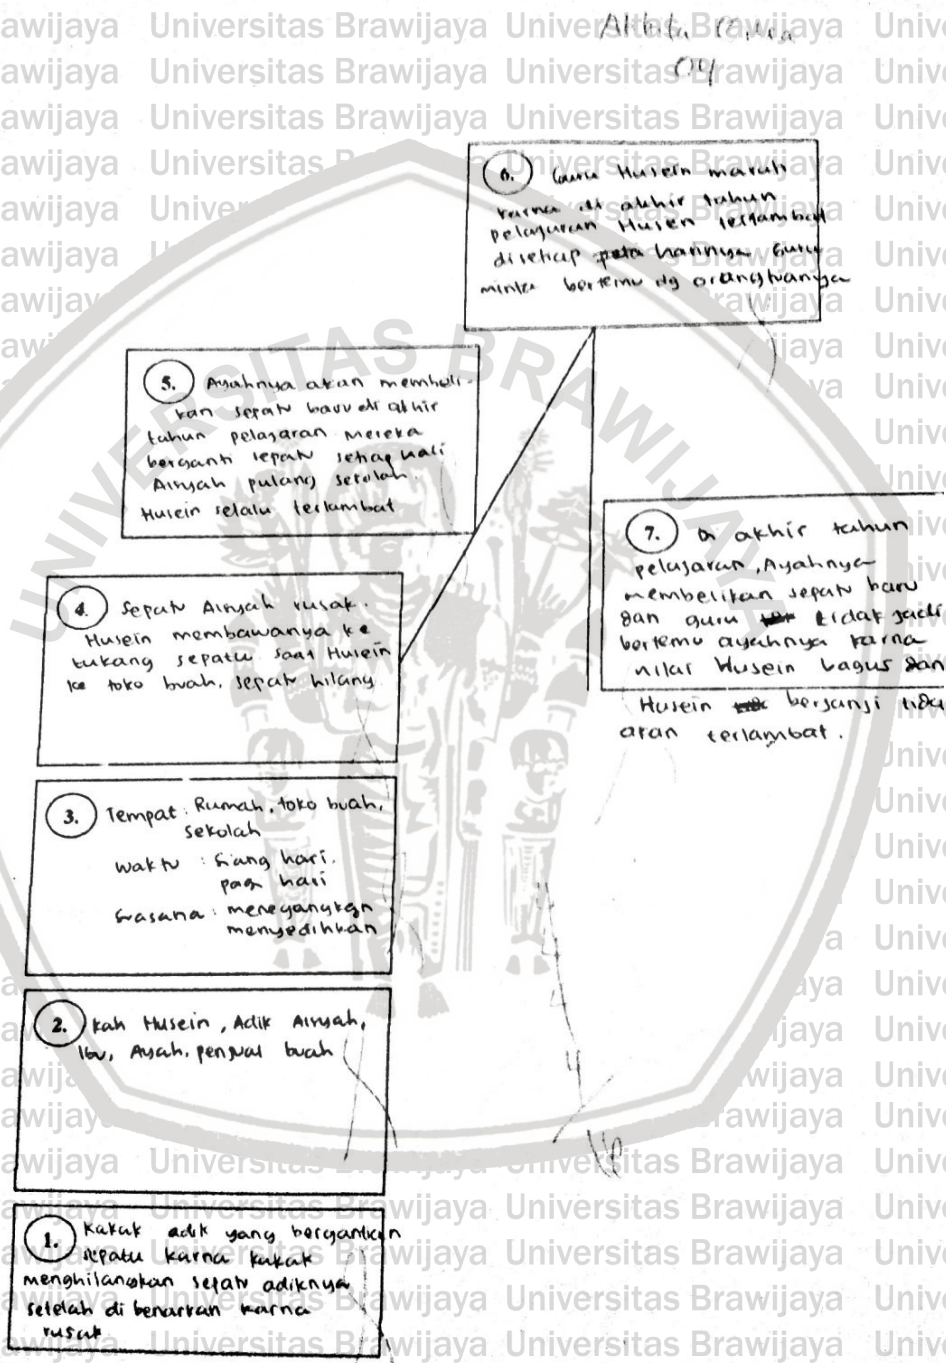 04
6. Guru Husein marah
karna di akhir tahun
pelajaran Husen terlambat
disetiap harinnya Guru
minta bertemu dg orangtuanya
5. Ayahnya akan membeli-
kan sepatu baru di akhir
tahun pelajaran Mereka
berganti sepatu setiap kali
Aisyah pulang sekolah.
Husein selalu terlambat
7. Di akhir tahun
pelajaran, Ayahnya
membelikan sepatu baru
dan guru tidak jadi
bertemu ayahnya karna
nilai Husein bagus dan
Husein berjanji tida
akan terlambat.
4. Sepatu Aisyah rusak.
Husein membawanya ke
tukang sepatu saat Husein
ke toko buah, sepatu hilang
3. Tempat : Rumah, toko buah,
sekolah
Waktu : Siang hari.
pagi hari
Suasana : menegangkan
menyedihkan
2. Kak Husein, Adik Aisyah,
Ibu, Ayah, penjual buah
1. Kakak adik yang bergantian
sepatu karna kakak
menghilangkan sepatu adiknya
setelah di benarkan karna
rusak
UNIVERSITAS BRAWIJAYA
Universitas Brawijaya